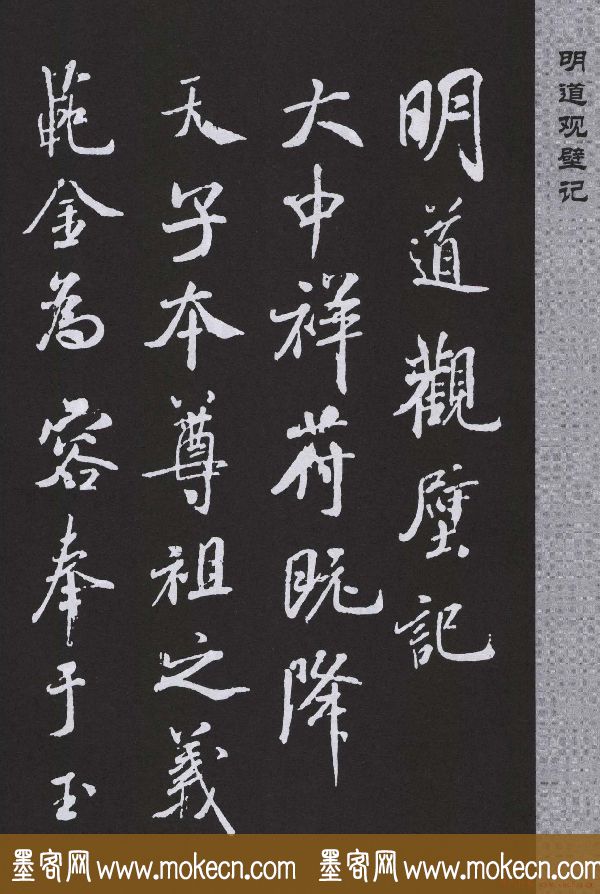 明道观壁记
明道觀壁記
大中祥苻既降
天子本尊祖之義
範金為容奉于玉
墨客网 www.mokecn.com 墨客网 www.mokecn.com